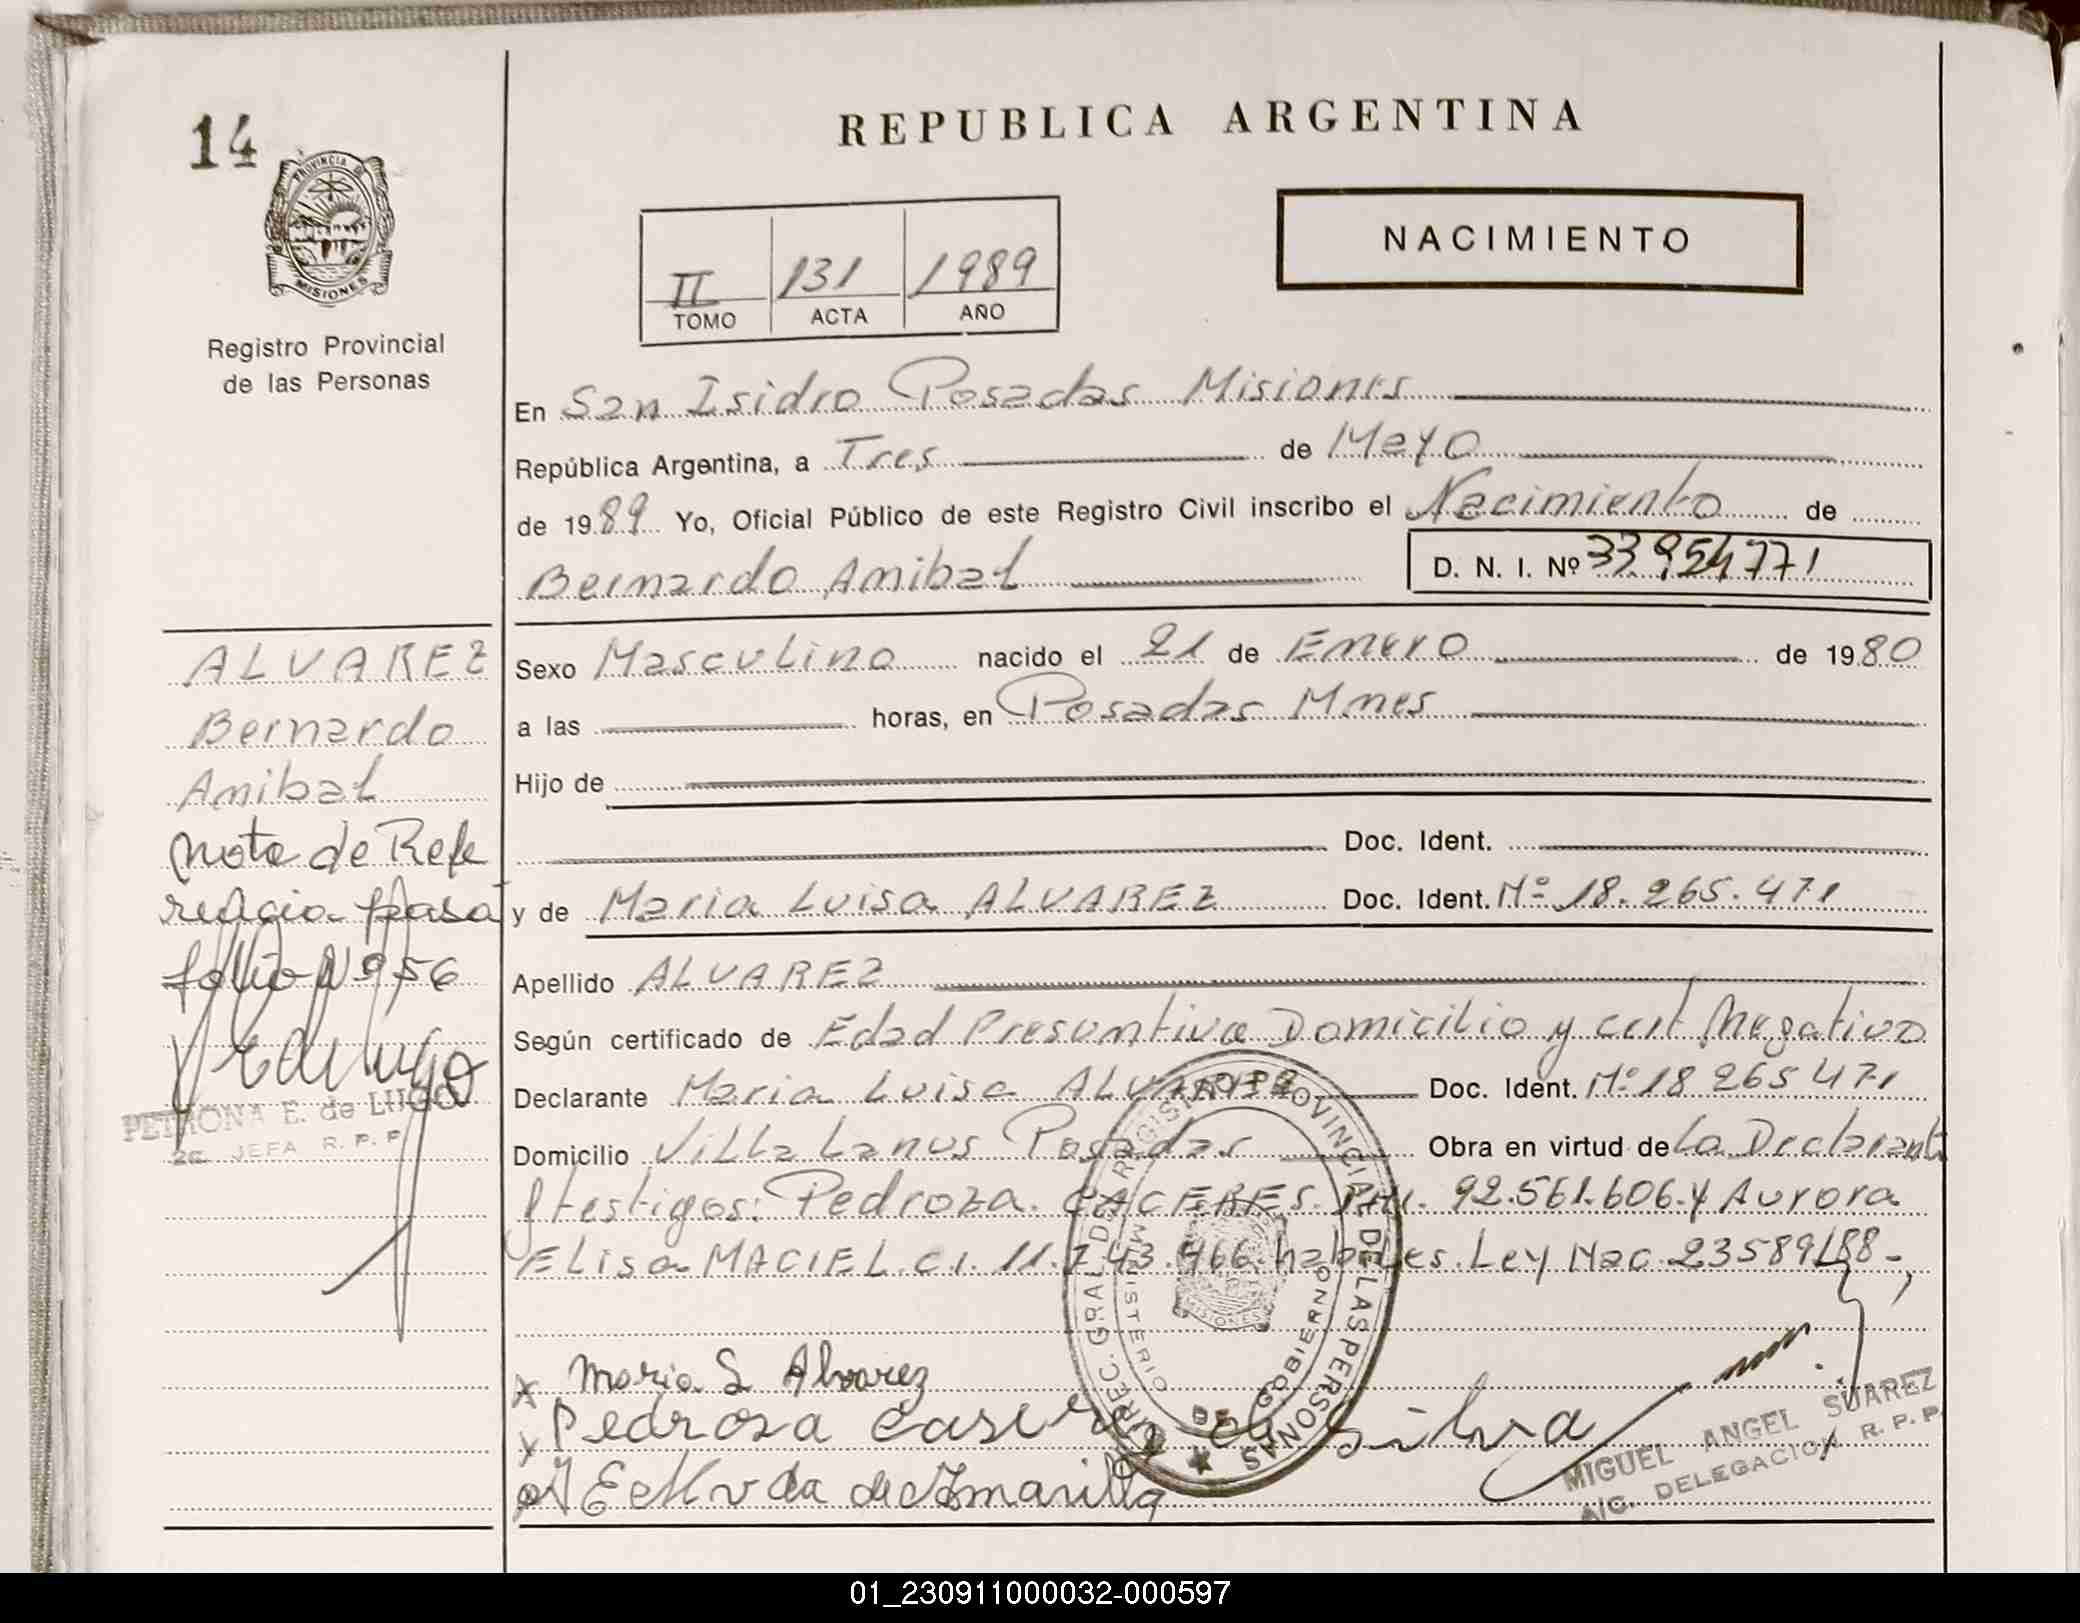 14
REPUBLICA ARGENTINA
PROVINCIA DE
MISIONES
Registro Provincial
de las Personas
II 131 1989
TOMO ACTA AÑO
NACIMIENTO
En San Isidro Posadas Misiones
República Argentina, a Tres de Mayo
de 1989 Yo, Oficial Público de este Registro Civil inscribo el Nacimiento de
Bernardo Anibal D. N. I. Nº 33.954771
ALVAREZ
Bernardo
Anibal
Nota de Refe
rencia pasa
folio Nº 56
PETRONA E. de LUGO
JEFA R. P. P.
Sexo Masculino nacido el 21 de Enero de 1980
a las horas, en Posadas Mnes
Hijo de
Doc. Ident.
y de Maria Luisa ALVAREZ Doc. Ident. Nº 18.265.471
Apellido ALVAREZ
Según certificado de Edad Presuntiva Domicilio y cert Negativo
Declarante Maria Luisa ALVAREZ Doc. Ident. Nº 18 265 471
Domicilio Villa Lanus Posadas Obra en virtud de La Declarant
y testigos: Pedroza CACERES. 92.561.606 y Aurora
Elisa MACIEL C.I. 11.743.466 habiles. Ley Nac. 23589/88-,
DIREC. GRAL. DEL REGISTRO PROVINCIAL DE LAS PERSONAS
MINISTERIO DE GOBIERNO
MISIONES
x Maria L Alvarez
x Pedrosa
silva
MIGUEL ANGEL SUAREZ
A/C. DELEGACION R. P. P.
01_230911000032-000597